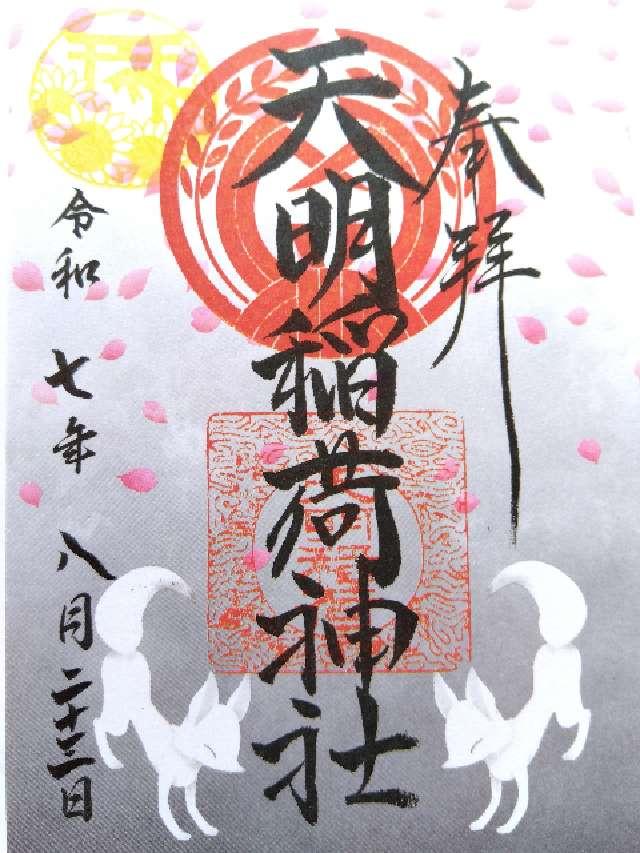 奉拝
天明稲荷神社
令和七年八月二十三日